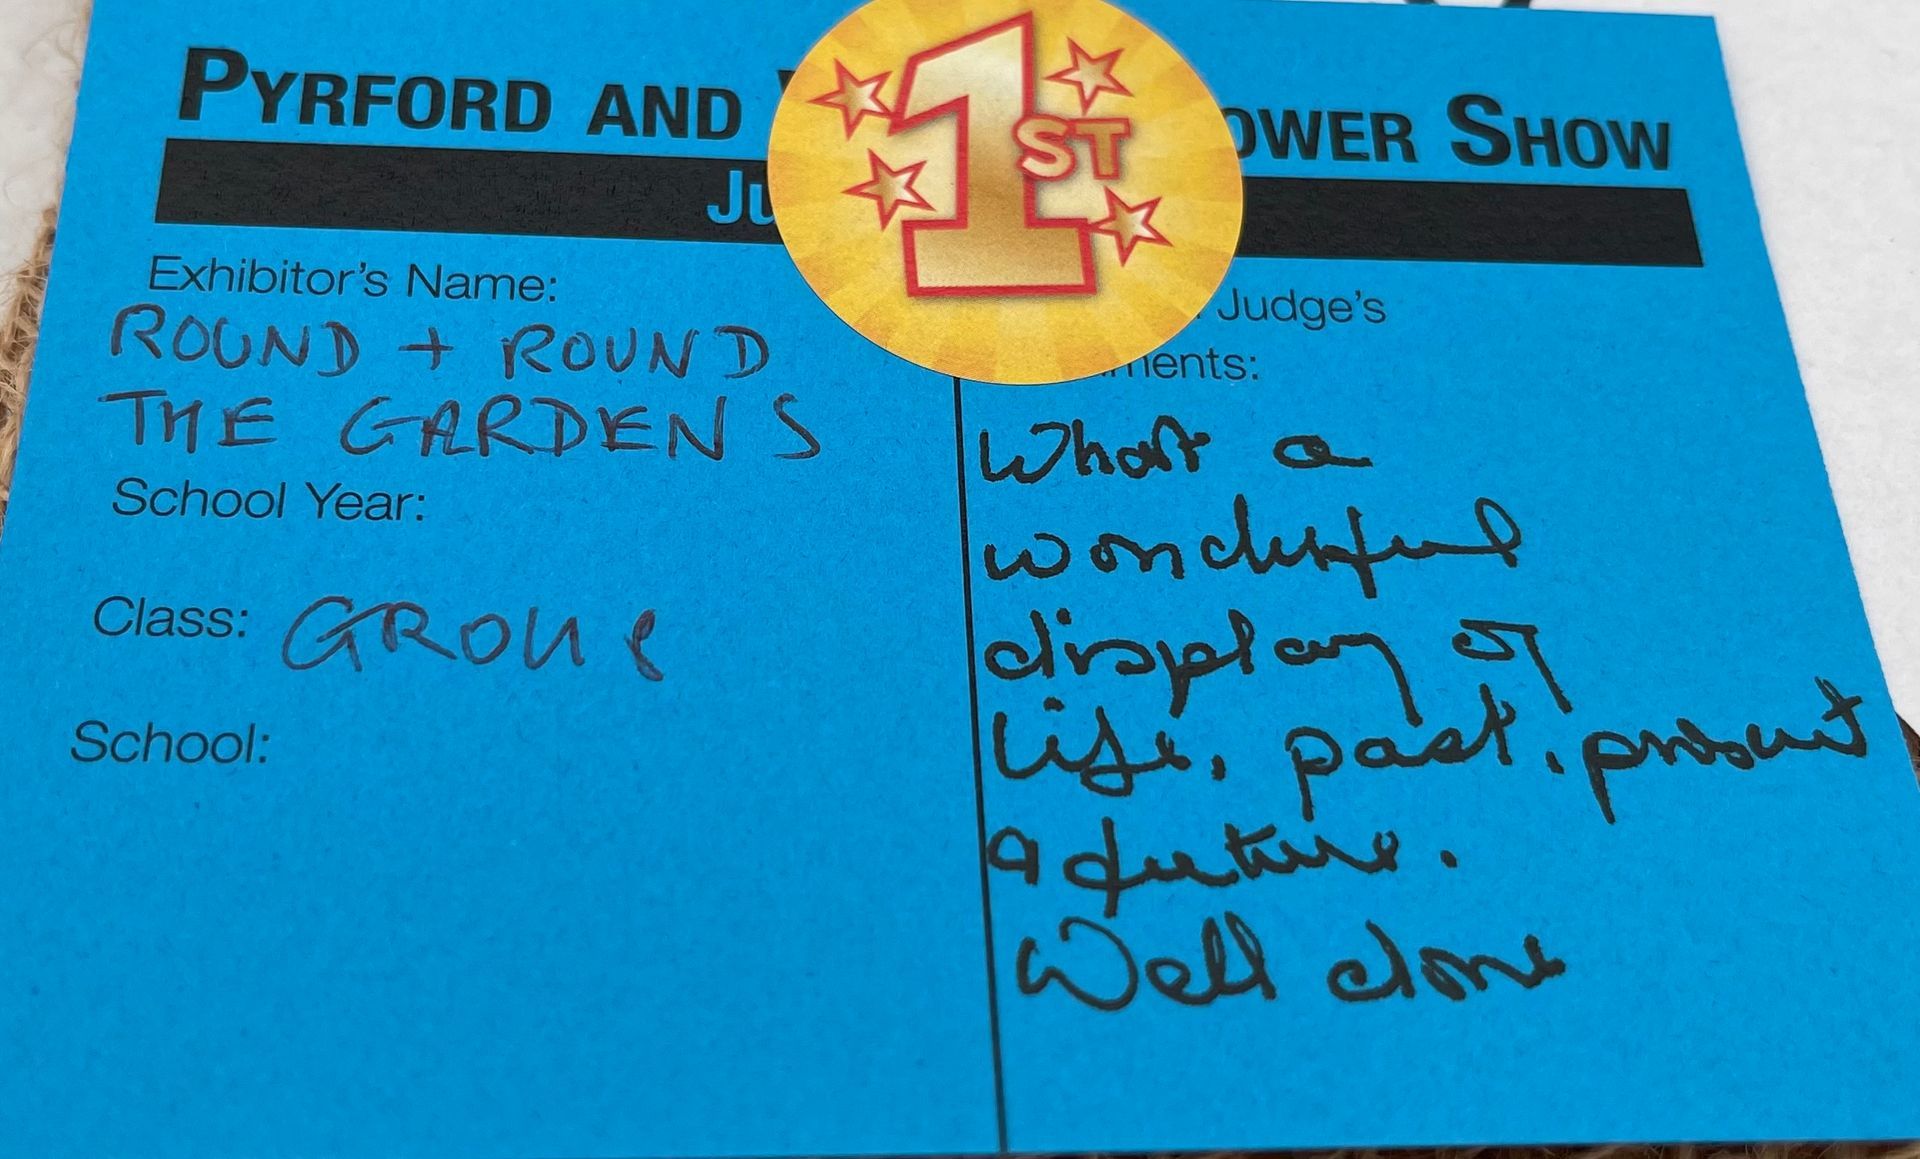 PYRFORD AND
OWER SHOW
Ju
1ST
Exhibitor's Name:
ROUND + ROUND
THE GARDENS
School Year:
Class: GROUP
School:
Judge's
ments:
What a
wonderful
display of
life, past, present
& future.
Well done